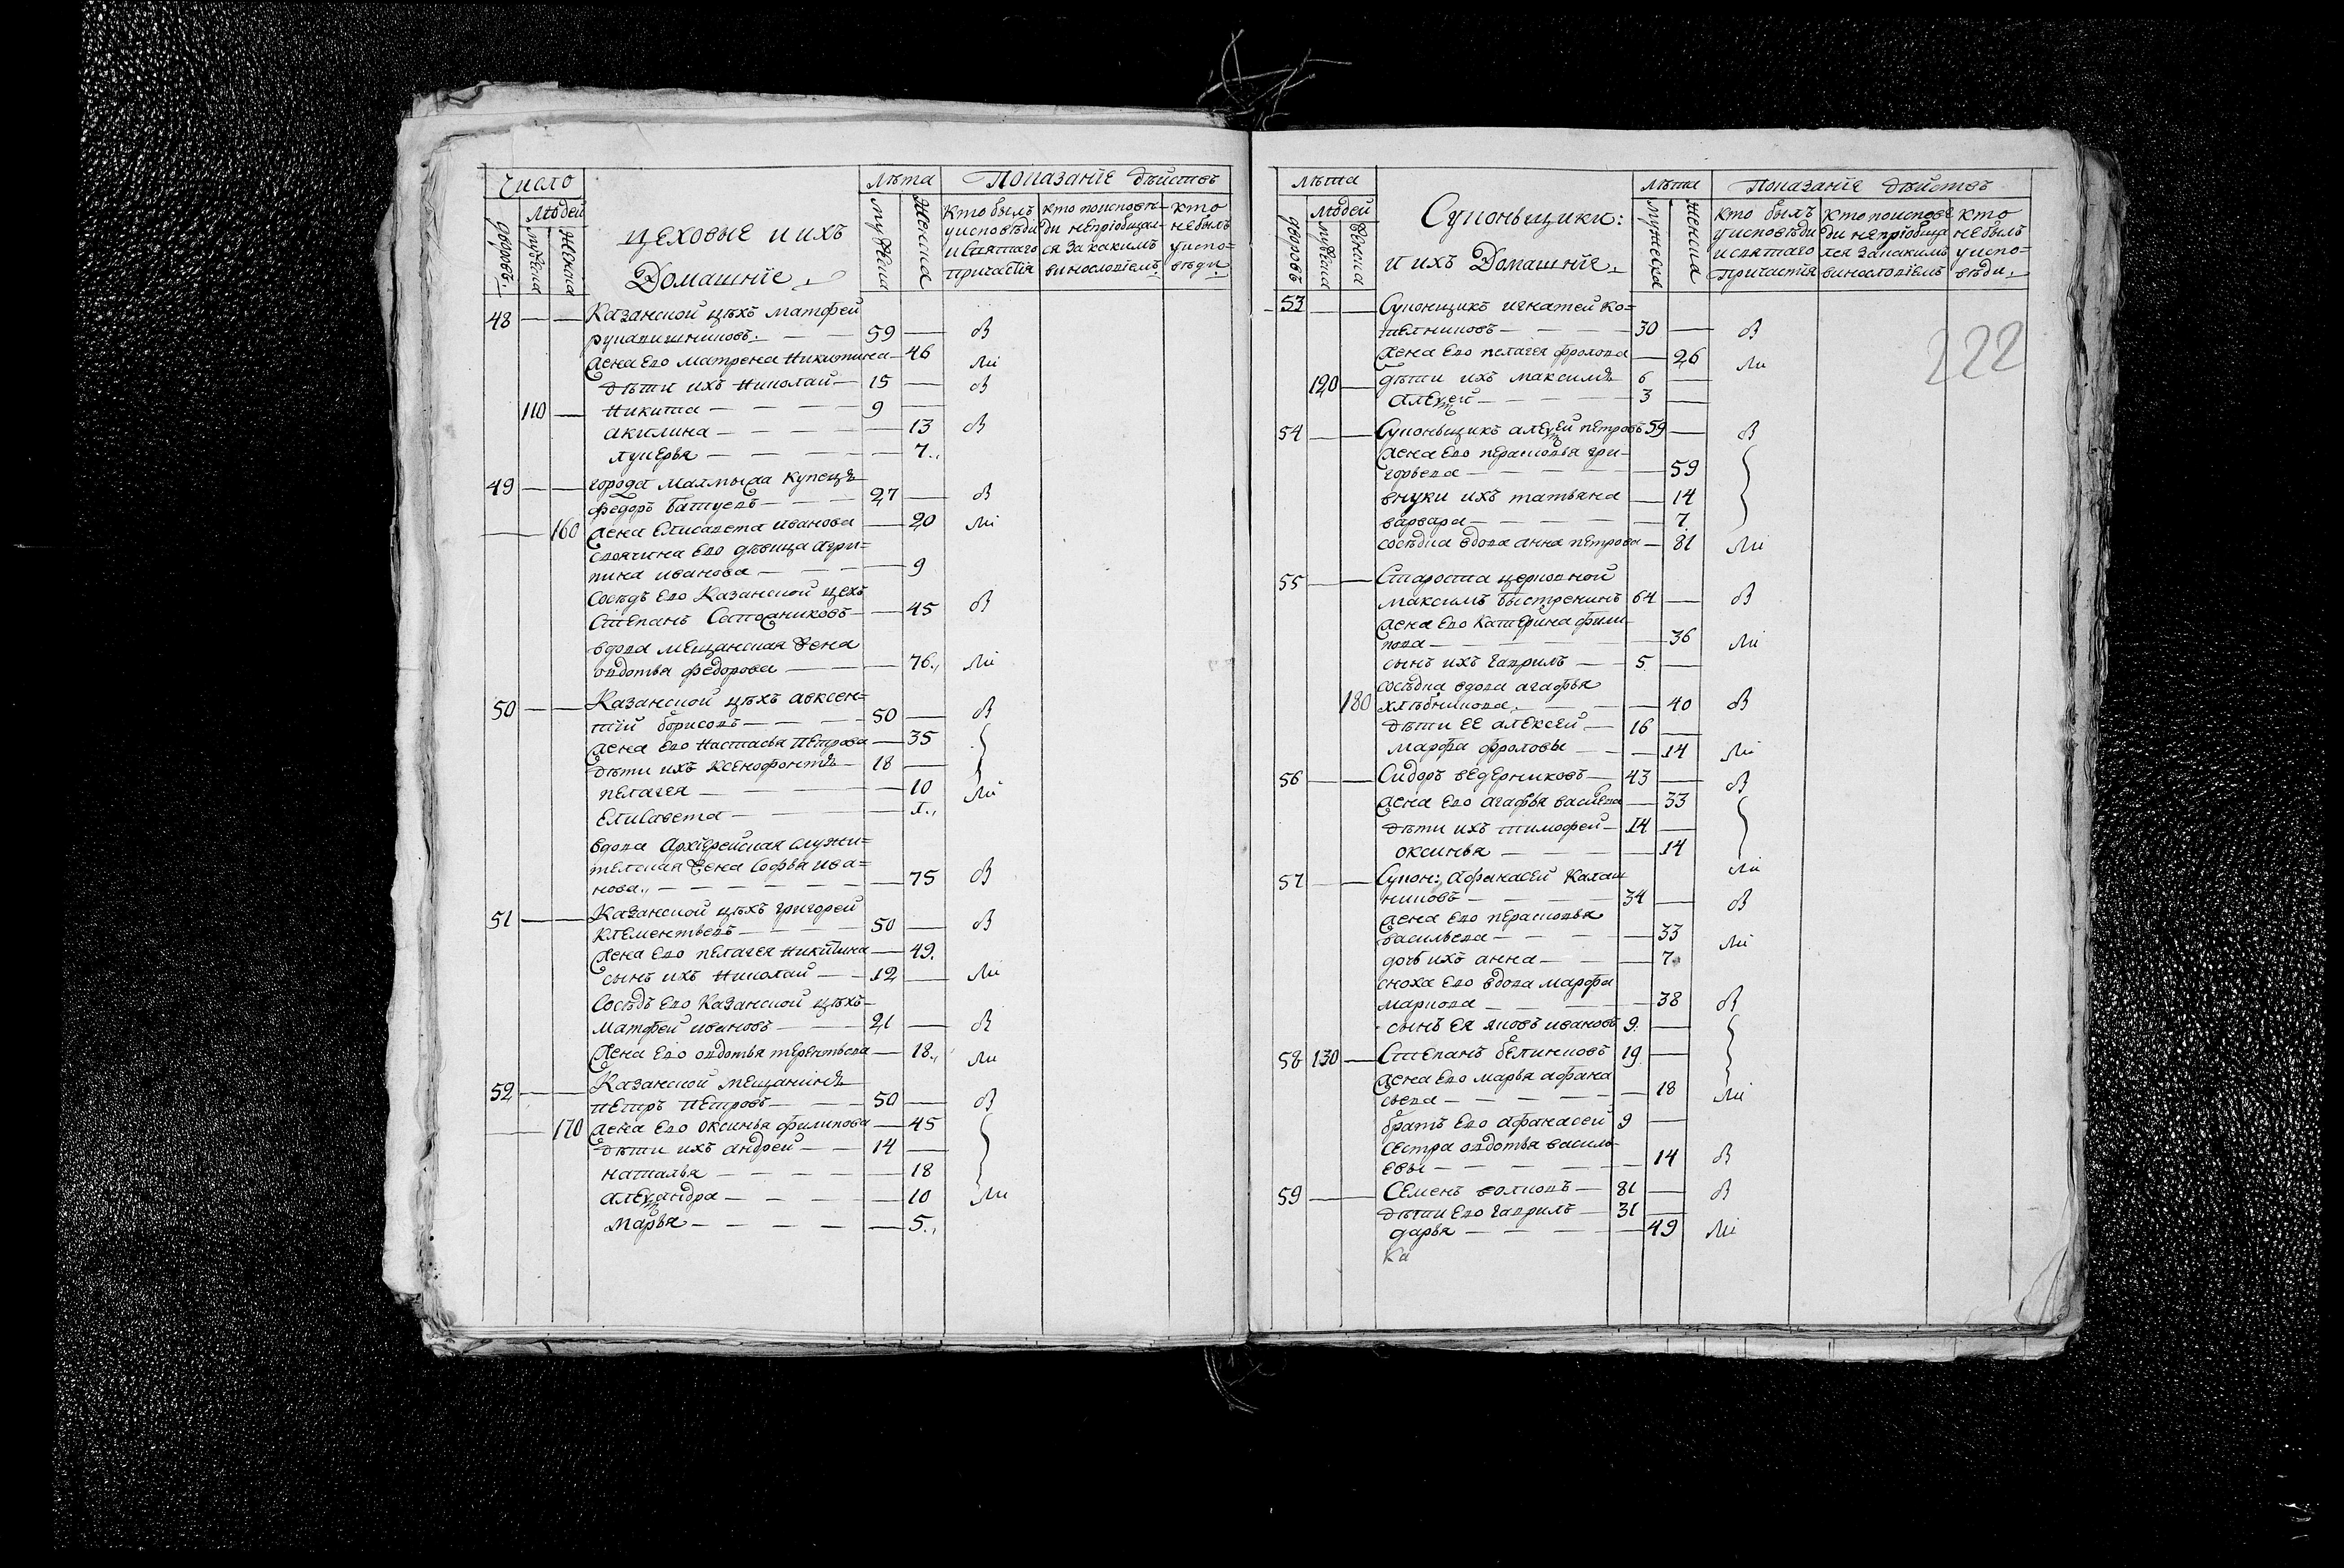 Число
Людей
дворовъ.
мужеска
женска
цеховые и ихъ
Домашнїе.
лѣта
мужеска
женска
Показанїе дѣйствъ
кто былъ
у исповѣди
и святаго
причастїя
кто по исповѣ-
ди не прїобщал-
ся за какимъ
винословїемъ
кто
не былъ
у испо=
вѣди.
48 — — Казанской цѣхъ матфей
рукавишниковъ. — — 59 — в
жена Его матрена Никитина — 46 ли
дѣти ихъ Николай — 15 — в
110 — Никита — — — — 9 —
акилина — — — — — 13 в
лукерья — — — — — 7.,
49 — — города Малмыжа купецъ
федоръ — — 27 — в
— 160 жена Елисавета иванова — 20 ли
своячина Его дѣвица агри=
пина иванова — — — 9
Сосѣдъ Его Казанской цехъ
Степанъ Сапожниковъ — — 45 в
вдова мещанская жена
овдотья федорова — — — 76., ли
50 — — Казанской цѣхъ авксен=
тїй борисовъ — — — 50 — в
жена Его Настасья Петрова — 35
дѣти ихъ Ксенофонтъ — 18 —
пелагея — — — — — 10 ли
Елисавета — — — — 1.,
вдова Архїерейская служи=
телская жена Софья ива=
нова., — — — — — — 75 в
51 — — Казанской цѣхъ григорей
Клементьевъ — — — 50 — в
жена Его пелагея никитина — 49.
сынъ ихъ Николай — — 12 — ли
Сосѣдъ Его Казанской цѣхъ —
матфей ивановъ — — — 21 — в
жена Его овдотья терентьева — 18., ли
52 — — Казанской мещанинъ
петръ петровъ — — — 50 — в
— 170 жена Его оксинья филипова — 45
дѣти ихъ андрей — — 14 —
наталья — — — — — 18
александра — — — — 10 ли
марья — — — — — 5.,
лѣта
людей
дворовъ
мужеска
женска
Супоньщики:
и ихъ Домашнїе.
лѣта
мужеска
женска
Показанїе дѣйствъ
кто былъ
у исповѣди
и святаго
причастїя
кто по исповѣ
ди не прїобща
лся за какимъ
винословїемъ
кто
не былъ
у испо=
вѣди.
222
53 — — Супонщикъ игнатей Ко=
телниковъ — — — — 30 — в
жена Его пелагея фролова — 26 ли
120 — дѣти ихъ максимъ 6 —
алексей — — — — 3 —
54 — — Супоньщикъ алексей петровъ 59 — в
жена Его парасковья гри-
горьева — — — — — 59
внуки ихъ татьяна — 14
варвара — — — — — 7.
сосѣдка вдова анна петрова — 81 ли
55 — — Староста церковной
максимъ быстренинъ 64 — в
жена Его Катерина фили-
пова — — — — — 36 ли
сынъ ихъ гаврилъ — — 5 —
180 сосѣдка вдова агафья
хлѣбникова. — — — 40 в
дѣти ЕЕ алексей — 16 —
марфа фроловы — — — 14 ли
56 — — Сидоръ ведерниковъ — 43 — в
жена Его агафья василева — 33
дѣти ихъ тимофей — 14 —
оксинья — — — — — 14
ли
57 — — Супон:, афанасей Калаш
никовъ — — — — 34 — в
жена Его парасковья
васильева — — — — 33 ли
дочь ихъ анна — — — 7.
сноха Его вдова марфа
маркова — — — — — 38 в
сынъ Ея яковъ ивановъ 9. —
58 130 — Степанъ белинковъ 19 —
жена Его марья афана
сьева — — — — — 18 ли
братъ Его афанасей 9 —
сестра овдотья василь-
евы — — — — — — 14 в
59 — — Семенъ волковъ — 81 — в
дѣти Его гаврилъ — 31 —
дарья — — — — — 49 ли
Ка